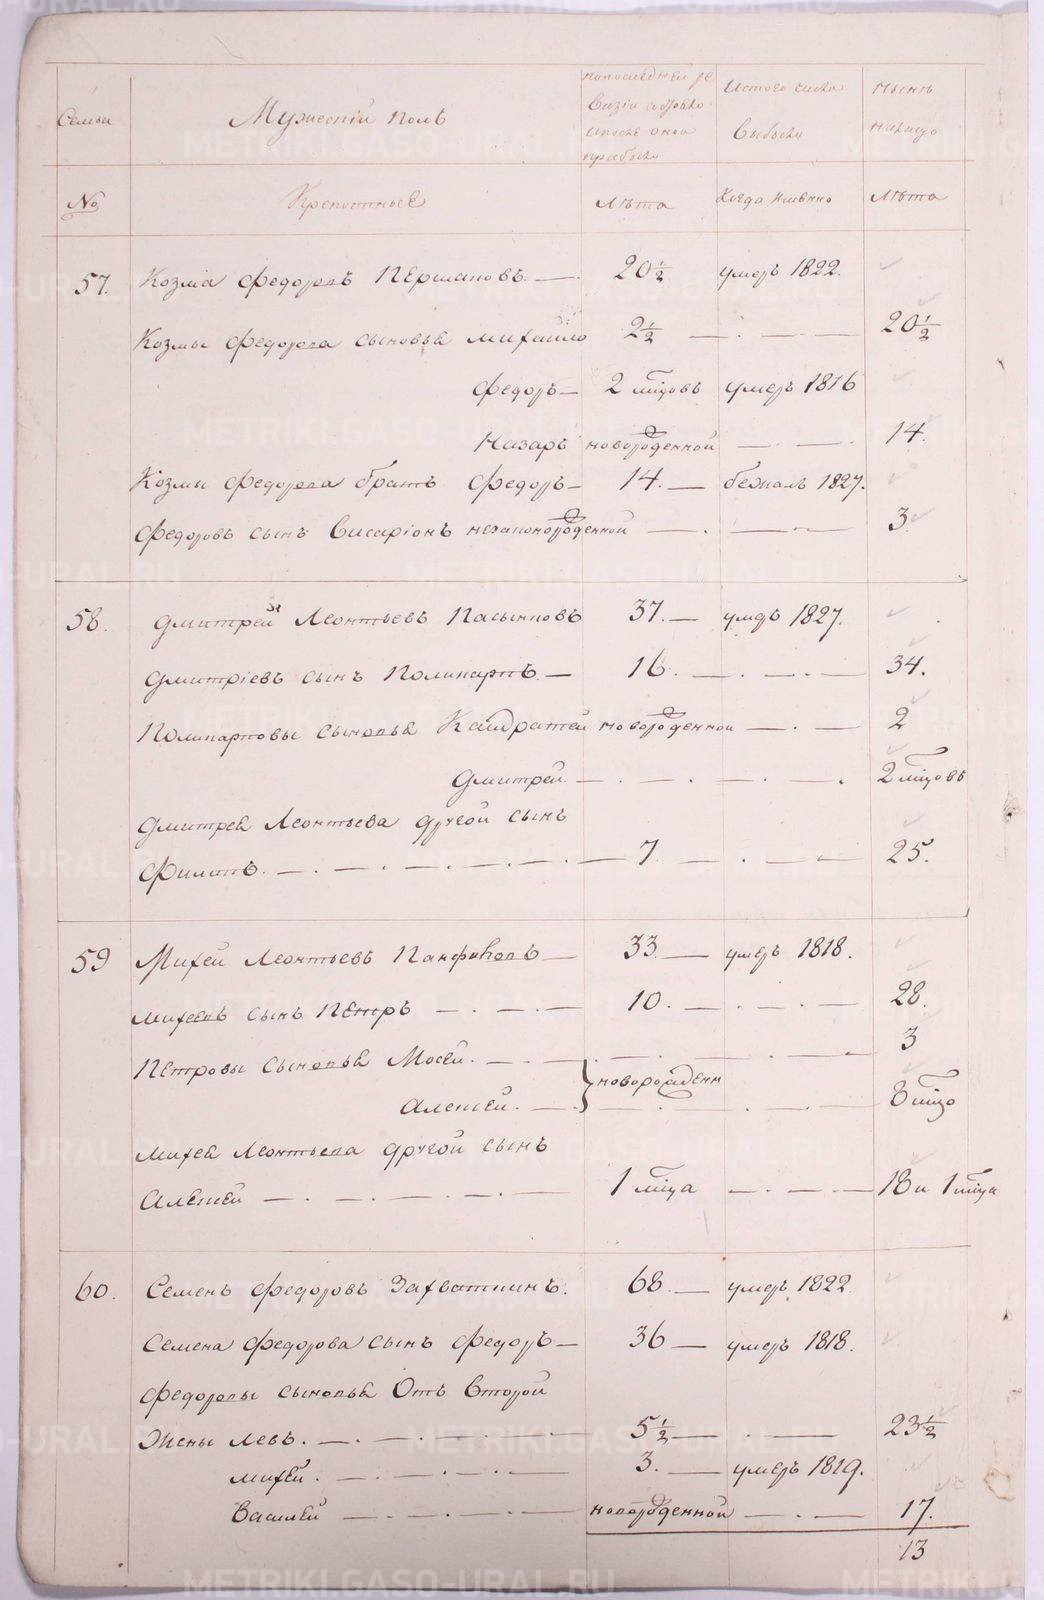 Семьи
Мужескiй полъ
попоследней ре
визiи состояло
ипосле оной
прибыло
Изтого числа
выбыло
Нынѣ
налицо
№
Крепостные
Лѣта
Когда имянно
Лѣта
57. Козма Федоровъ Першановъ — 20 1/2 умеръ 1822.
Козмы Федорова сыновья Михайло 2 1/2 — 20 1/2
Федоръ — 2 мцовъ умеръ 1816
Назаръ новорожденной — 14.
Козмы Федорова братъ Федоръ — 14. — бежалъ 1827.
Федоровъ сынъ Висарiонъ незаконорожденной — 3
58. Дмитрей Леонтьевъ Пасынковъ 37. — умръ 1827.
Дмитрiевъ сынъ Поликарпъ — 16. — 34.
Поликарповы сыновья Кандратей новорожденной — 2
Дмитрей — 2 мцовъ
Дмитрея Леонтьева другой сынъ
Филипъ. — 7. — 25.
59 Михей Леонтьевъ Панфиловъ — 33. — умеръ 1818.
Михеевъ сынъ Петръ — 10. — 28.
Петровы сыновья Мосей. — 3
новорожден
Алексей. — 8 мцо
Михея Леонтьева другой сынъ
Алексей — 1 мца — 18 и 1 мца
60. Семенъ Федоровъ Захваткинъ. 68. — умеръ 1822.
Семена Федорова сынъ Федоръ — 36 — умеръ 1818.
Федоровы сыновья Отъ второй
Жены Левъ. — 5 1/2 — 23 1/2
Михей. — 3. — умеръ 1819.
Василей — новорожденной — 17.
13
METRIKI.GASO-URAL.RU